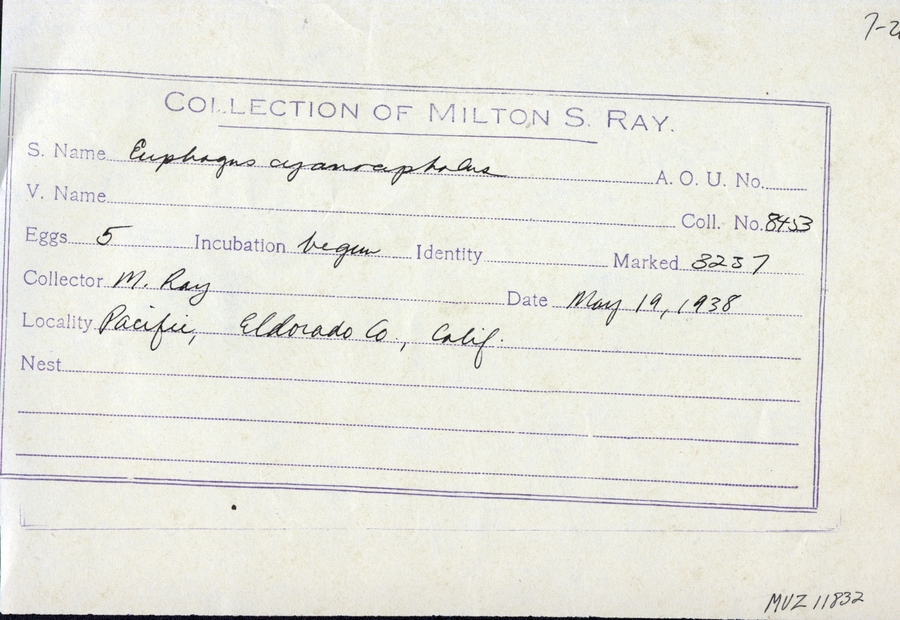 7-2
COLLECTION OF MILTON S. RAY.
S. Name Euphagus cyanocephalus A. O. U. No.
V. Name Coll. No. 8453
Eggs 5 Incubation begun Identity Marked 3237
Collector M. Ray Date May 19, 1938
Locality Pacific, Eldorado Co., Calif.
Nest
MVZ 11832